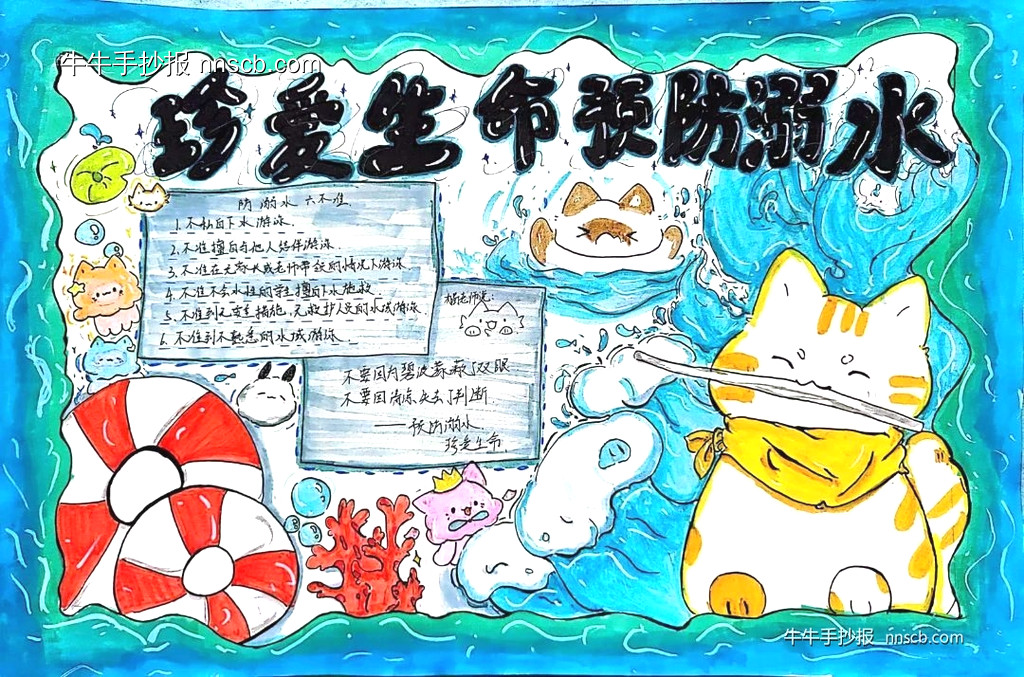 牛牛手抄报 nnscb.com
珍爱生命预防溺水
防溺水 六不准
1. 不私自下水游泳
2. 不准擅自与他人结伴游泳
3. 不准在无家长或老师带领的情况下游泳
4. 不准不会水性的学生擅自下水施救
5. 不准到无安全措施,无救护人员的水域游泳
6. 不准到不熟悉的水域游泳
猫老师说:
不要因为碧波荡漾了双眼
不要因清凉失去了判断
——预防溺水
珍爱生命
牛牛手抄报 nnscb.com